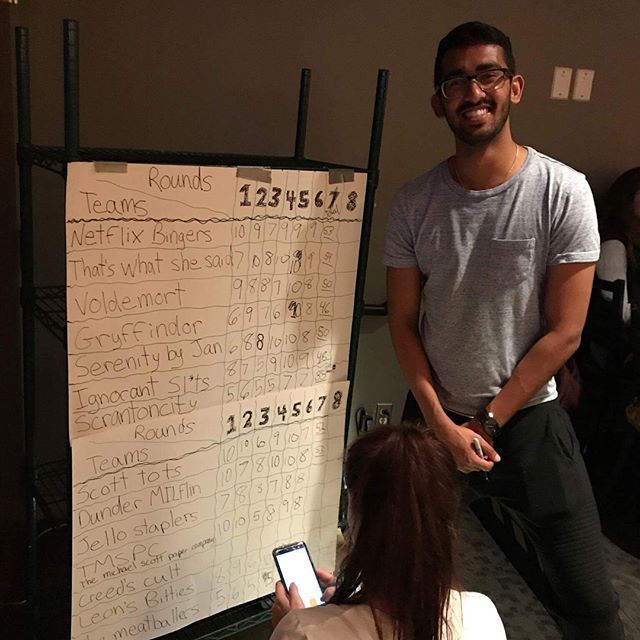 Rounds
Teams 1 2 3 4 5 6 7 8
Netflix Bingers 10 9 7 9 9 9
That's what she said 7 10 8 10
Voldemort 9 8 8 7 10 8 50
Gryffindor 6 9 7 6 10 8 46
Serenity by Jan 6 8 8 10 10 8 50
Ignorant Sl*ts 8 7 5 9 10 9 48
Scrantoncity 5 6 5 5 7
Rounds
Teams 1 2 3 4 5 6 7 8
Scott tots 10 10 6 9 10 7
Dunder MILFlin 10 7 8 10 10 8
Jello staplers 7 8 8
TMSPC 10 10 5 8 9 8
the michael scott paper company
Creed's cult
Leon's Bitties
meatballers